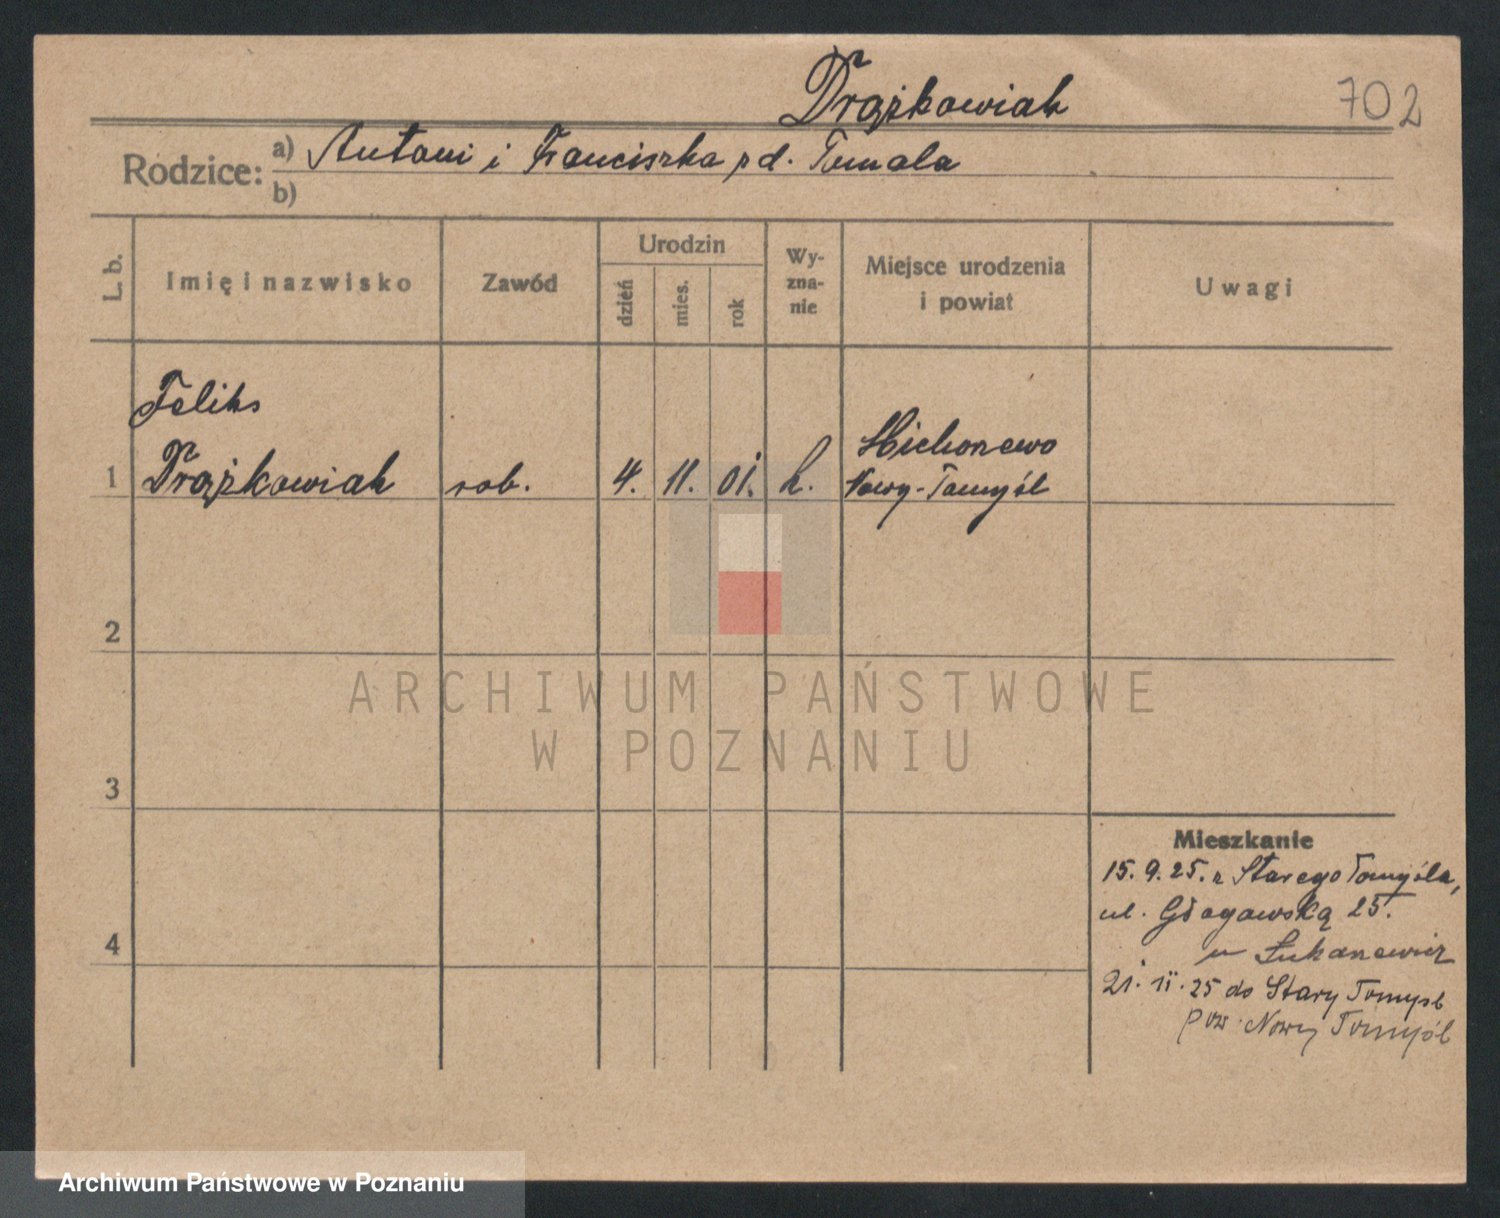 Drążkowiak
702
Rodzice: a) Antoni i Franciszka rd. Tomala
b)
L. b.
Imię i nazwisko
Zawód
Urodzin
dzień
mies.
rok
Wy-
zna-
nie
Miejsce urodzenia
i powiat
Uwagi
Feliks
1 Drążkowiak rob. 4. 11. 01. k.
Michorzewo
Nowy-Tomyśl
2
3
4
Mieszkanie
15. 9. 25. z Starego Tomyśla,
ul. Głogowska 25.
u
21. 11. 25 do Stary Tomyśl
pow. Nowy Tomyśl
ARCHIWUM PAŃSTWOWE
W POZNANIU
Archiwum Państwowe w Poznaniu